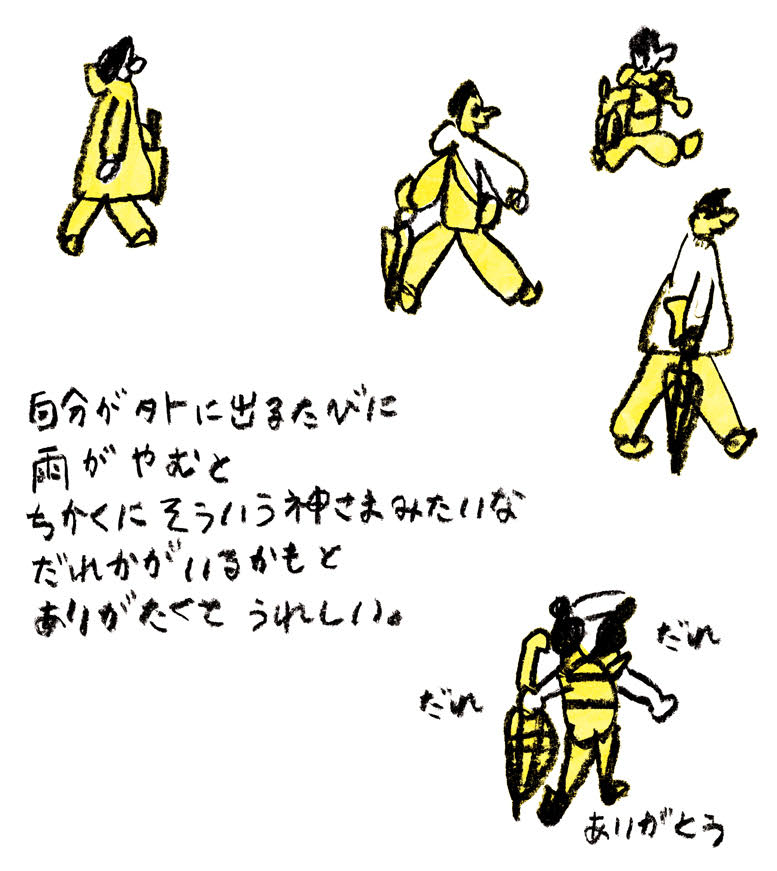 自分が外に出るたびに
雨がやむと
ちかくにそういう神さまみたいな
だれかがいるかもと
ありがたくて うれしい。
だれ
だれ
ありがとう